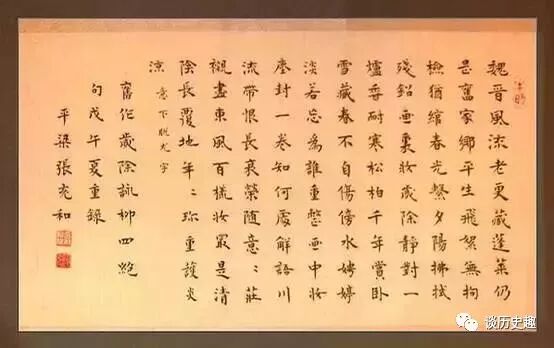 魏晉風流老更藏蓬萊仍
是舊家鄉平生飛絮無拘
檢猶綰春光繫夕陽拂拭
殘鉛畫裏妝歲除靜對一
爐香耐寒松柏千年賞卧
雪藏春不自傷傍水娉婷
淡若忘為誰重整畫中妝
塵封一卷知何處解語川
流帶恨長衰榮隨意〻莊
褪盡東風百樣妝最是清
陰長覆地年〻珍重護炎
涼 意下脫尤字
舊作歲除詠柳四絕
句戊午夏重錄
平梁張充和
谈历史趣